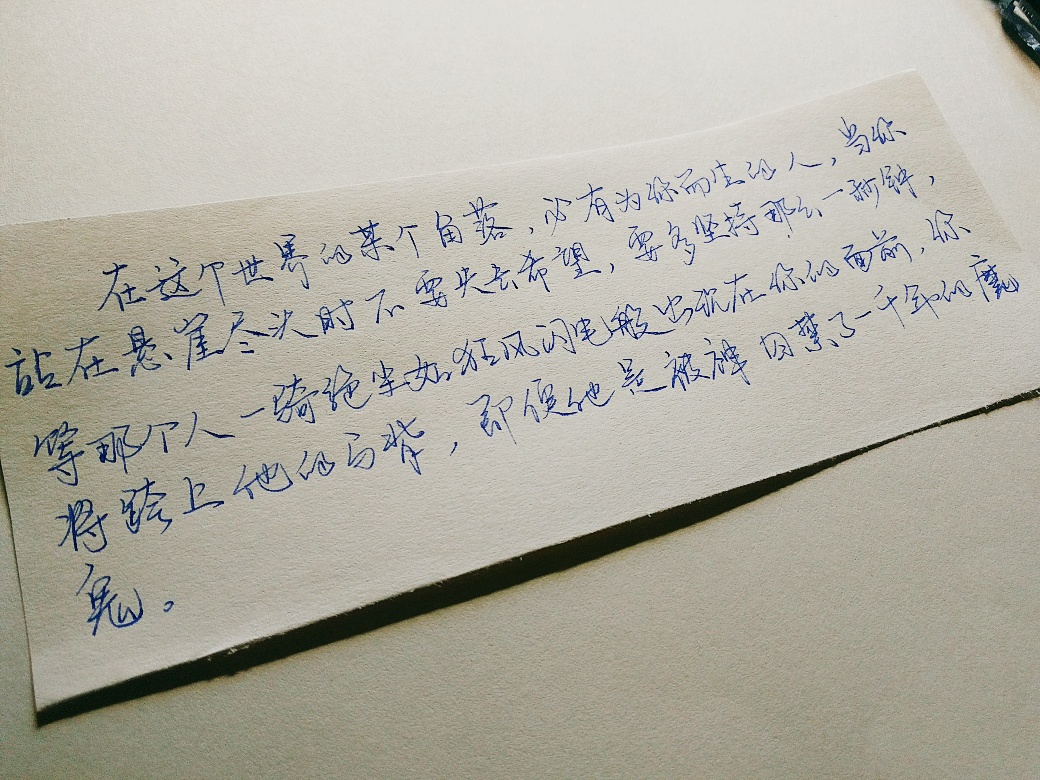 在这个世界的某个角落，必有为你而生的人，当你
站在悬崖尽头时不要失去希望，要多坚持那么一秒钟，
等那个人一骑绝尘如狂风闪电般出现在你的面前，你
将跨上他的马背，即便他是被神囚禁了一千年的魔
鬼。